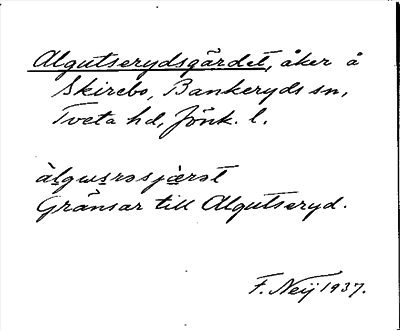 Algutserydsgärdet, åker å
Skirebo, Bankeryds sn,
Tveta hd, Jönk. l.
àlgɯs̱rəsjæ̱rət
Gränsar till Algutseryd.
F. Neij 1937.